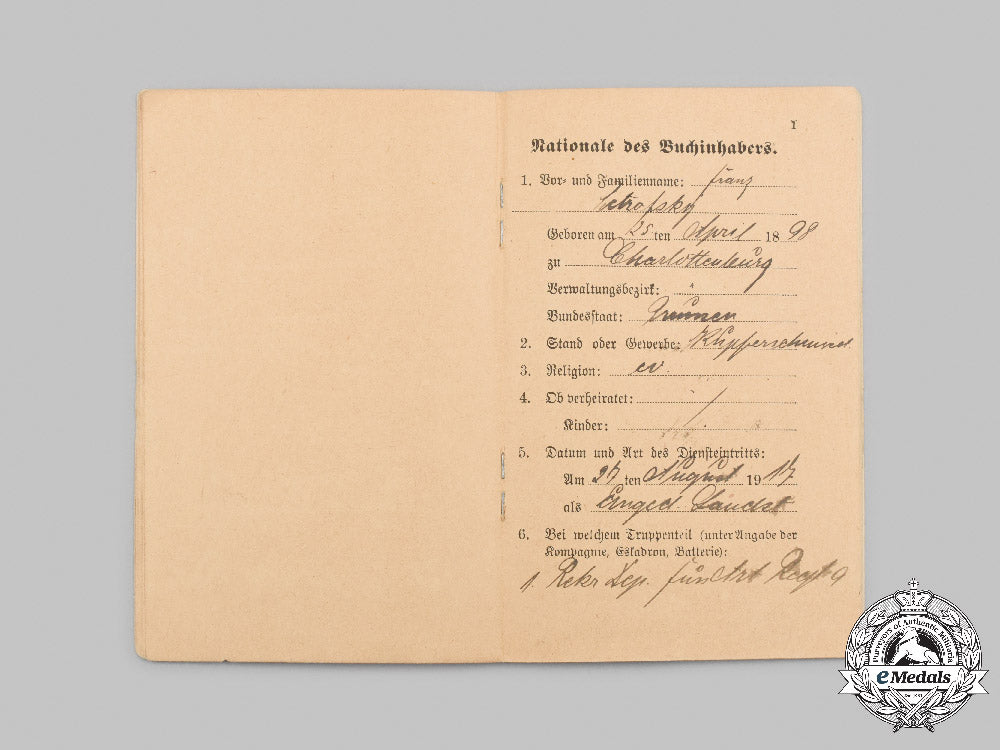 1
Nationale des Buchinhabers.
1. Vor- und Familienname: Franz
Geboren am 25 ten April 1898
zu Charlottenburg
Verwaltungsbezirk: "
Bundesstaat:
2. Stand oder Gewerbe: Kupferschmied
3. Religion: ev.
4. Ob verheiratet: /
Kinder: /.
5. Datum und Art des Diensteintritts:
Am 27 ten August 1917
als Unged Landst
6. Bei welchem Truppenteil (unter Angabe der
Kompagnie, Eskadron, Batterie):
1. Rekr Dep. Fuß Art Regt 9
Purveyors of Authentic Militaria
eMedals